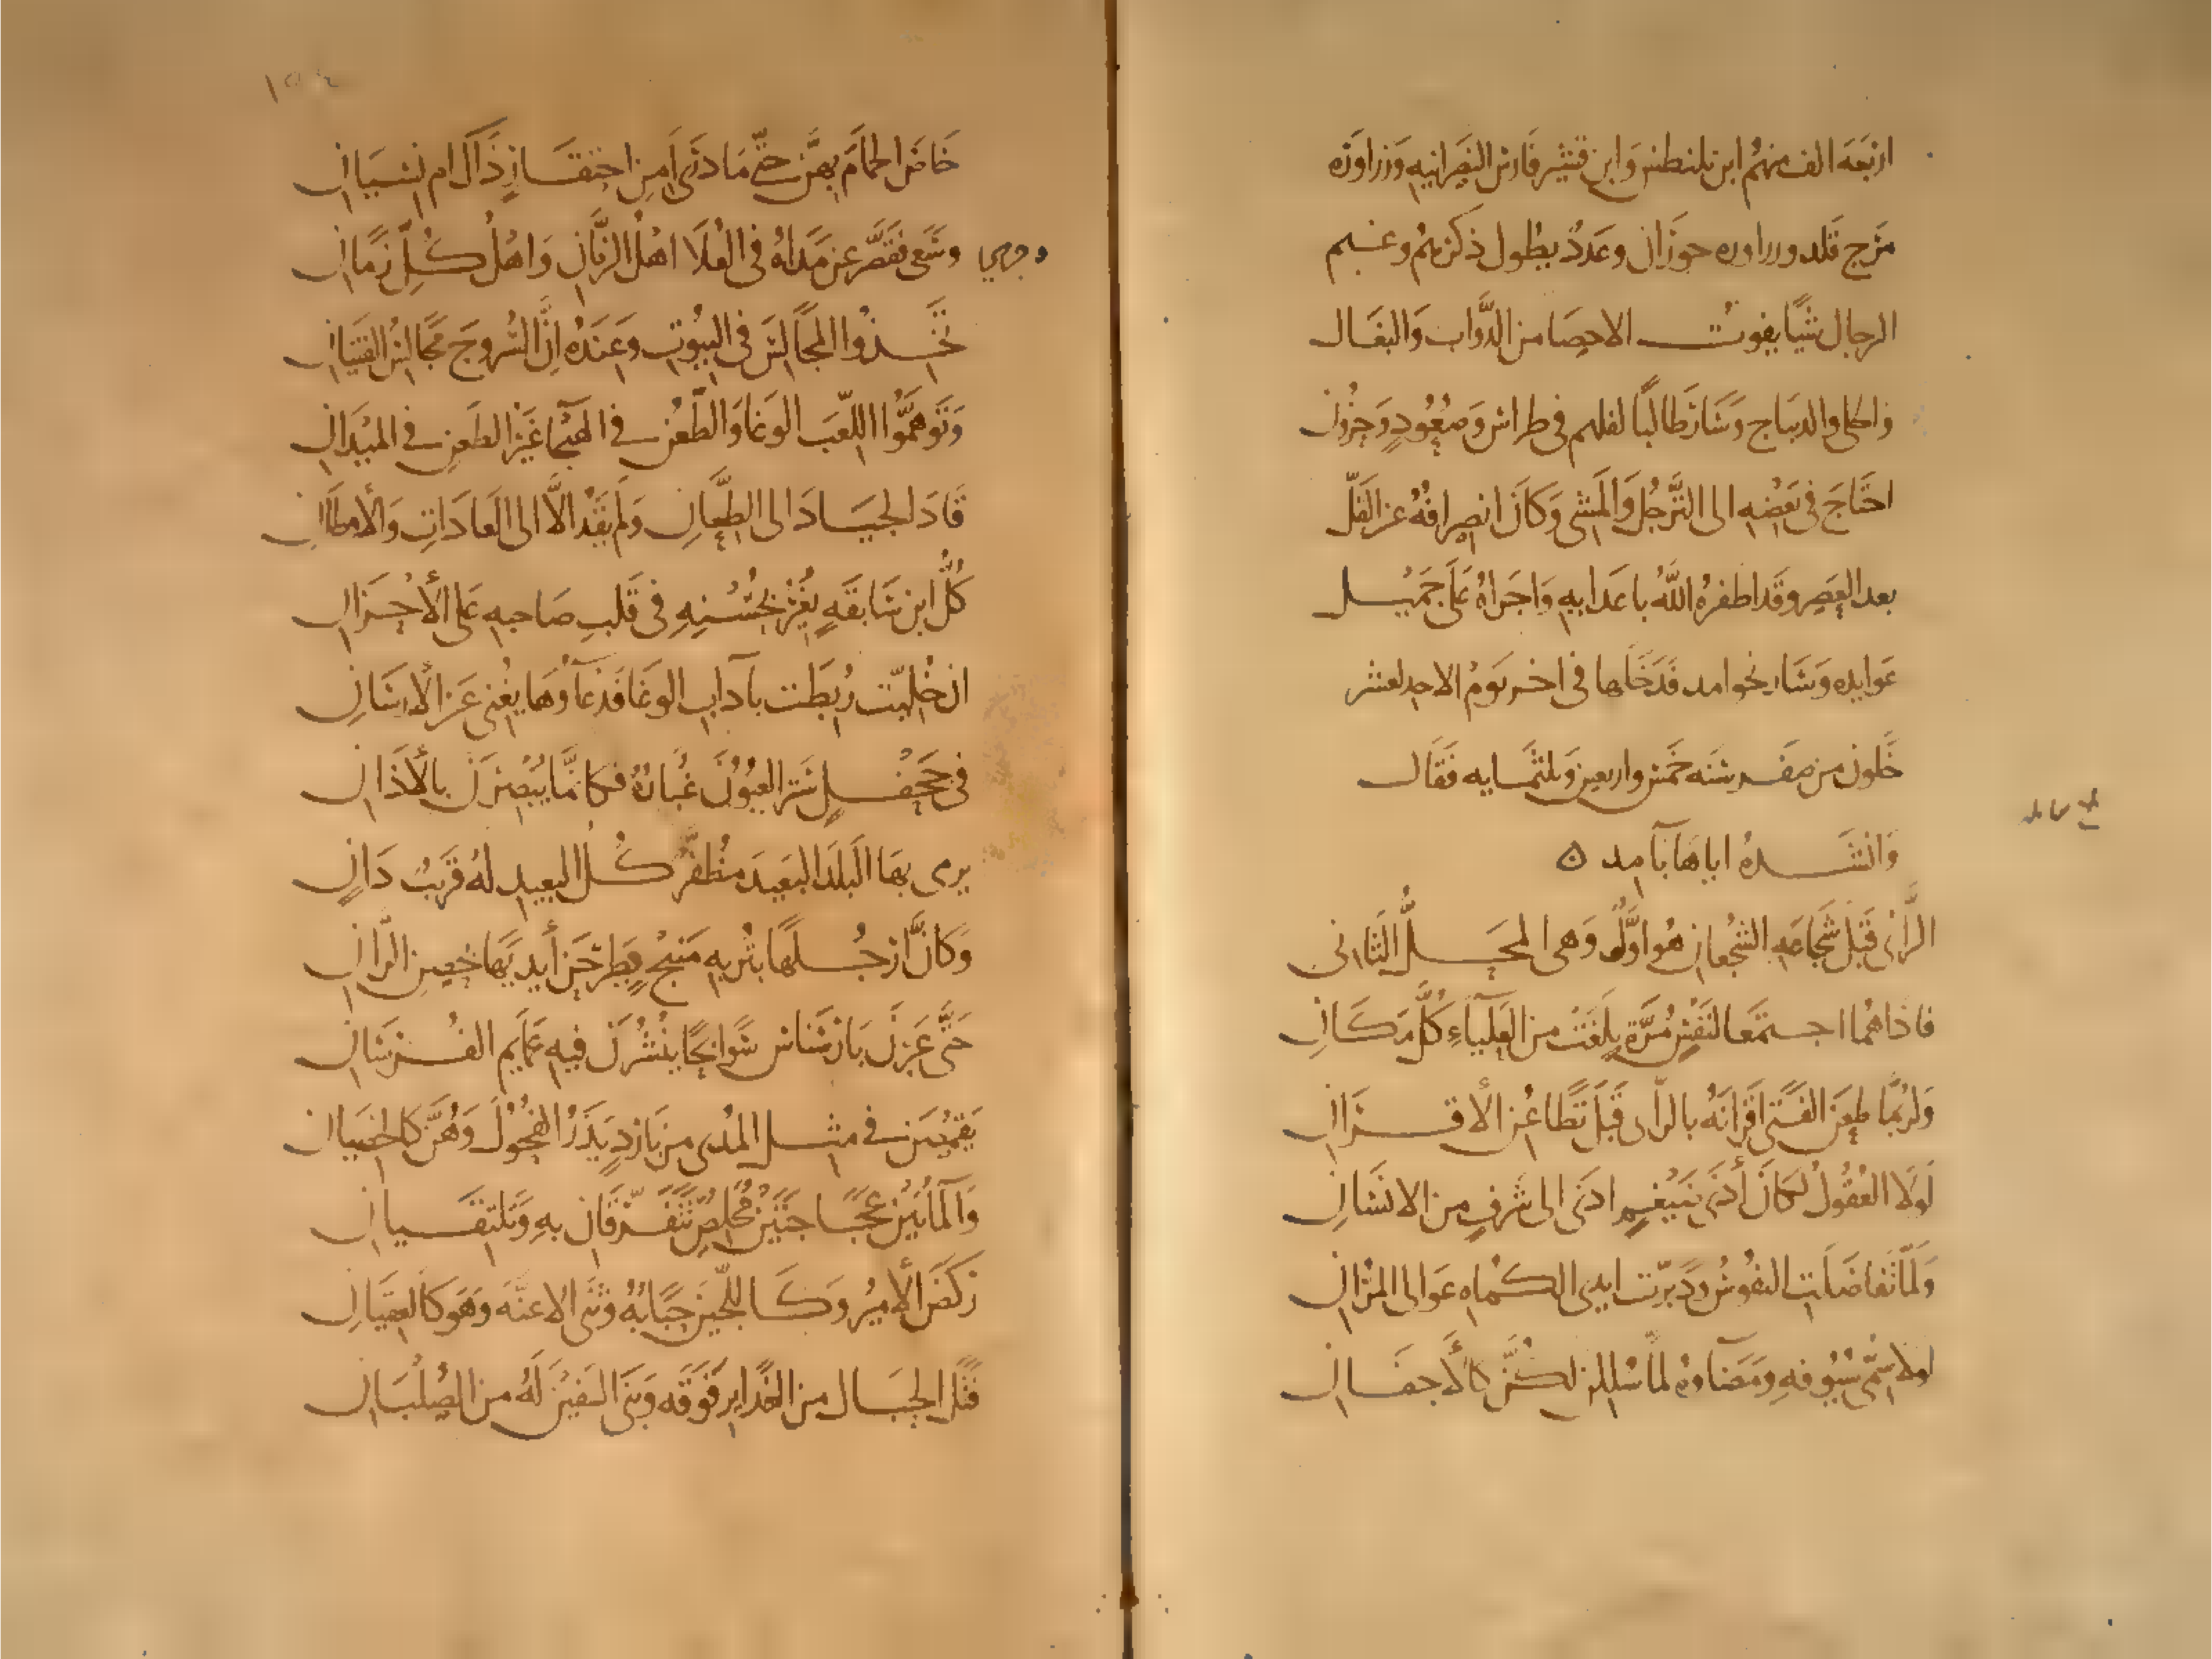 اربعة الف منهم ابن بلنطس وابن قثير فارس النصرانيه وزراوره
مرج قلد ورراوره حوزان وعدد يطول ذكرهم وغنم
الرجال شيًا يفوت الاحصا من الدواب والبغال
والحلى والديباج وسار طالبًا لفلهم فى طراس وصعود وحزون
احتاج فى بعضه الى الترجل والمشى وكان انصرافه عن الفلّ
بعد العصر وقد اظفره الله باعدايه واجراه على جميل
عوايده وسار نحو امد فدخلها فى اخر يوم الاحد لعشر
خلون من صفر سنه خمس واربعين وثلثمايه فقال
وانشده اياها بآمد
الرأى قبل شجاعه الشجعان هو اوّلٌ وهى المحل الثانى
فاذا هما اجتمعا لنفسٍ مرّةٍ بلغت من العلياءِ كل مكان
ولربّما طعن الفتى اقرانه بالرأى قبل تطاعن الاقران
لولا العقول لكان أدنى ضيغمٍ ادنى الى شرفٍ من الانسان
ولما تفاضلت النفوس ودبرت ايدى الكماه عوالى المران
لولا سمىّ سيوفه ومضاوه لما سللن لكنّ كالاجفان
خاض الحمام بهنّ حتى ما درى أمن احتقارٍ ذاك ام نسيان
وجرى وسعى فقصّر عن مداه فى العلا اهل الزمان واهل كل زمان
تخذوا المجالس فى البيوت وعنده انّ السروج مجالس الفتيان
وتوهموا اللعب الوغا والطعن فى الهيجا غير الطعن فى الميدان
قاد الجياد الى الطعان ولم يقد الا الى العادات والاوطان
كلّ ابن سابقةٍ يغير بحسنه فى قلب صاحبه على الأحزان
ان خليت ربطت بآداب الوغا فدعاوها يغنى عن الأرسان
فى جحفلٍ ستر العيون غباره فكانما يبصرن بالأذان
يرمى بها البلد البعيد مظفر كل البعيد له قريب دانٍ
وكأنّ ارجلها بتربه منبجٍ يطرحن أيديها بحصن الرّان
حتّى عبرن بارسناس سوابحًا ينشرن فيه عمايم الفرسان
يقمصن فى مثل المدى من باردٍ يذر الفحول وهنّ كالخصيان
والمآ بين عجاجتين مخلصٌ تتفرقان به وتلتقيان
ركض الأمير وكاللجين حبابه وثنى الاعنه وهو كالعقيان
فتل الجبال من الغداير فوقه وبنى السفين له من الصلبان